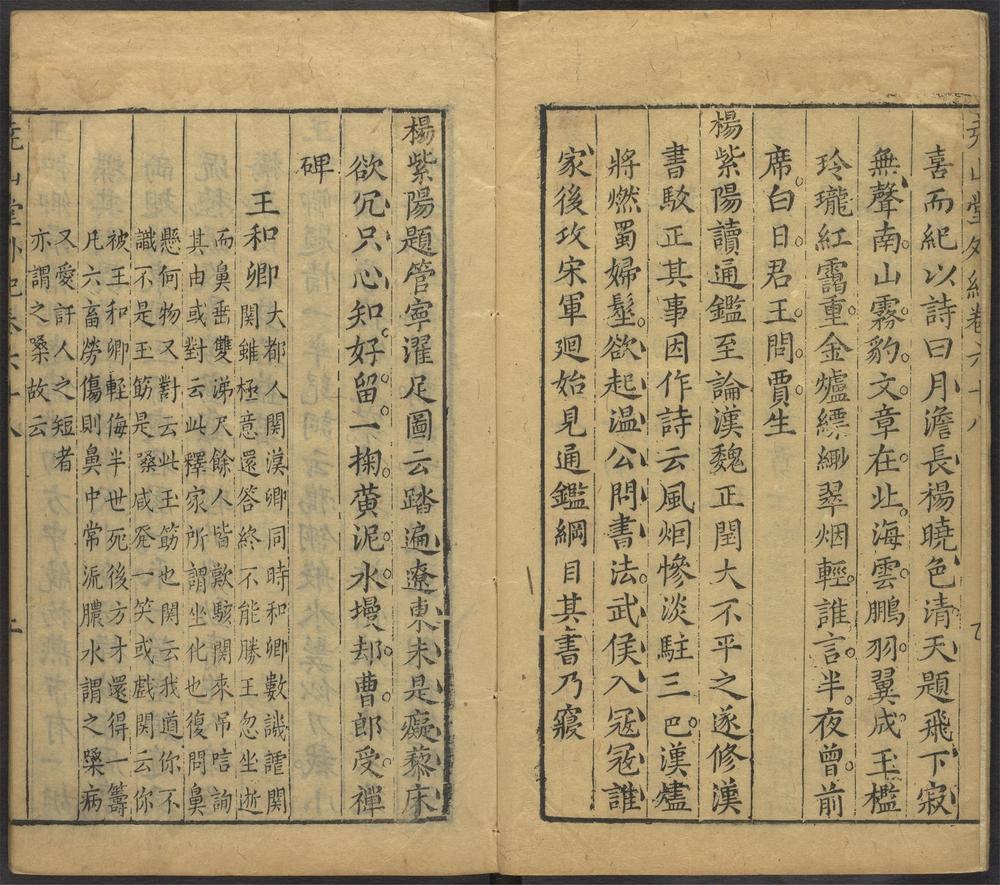 堯山堂外紀卷六十八
喜而紀以詩曰月澹長楊曉色清天題飛下寂
無聲南山霧豹文章在北海雲鵬羽翼成玉檻
玲瓏紅靄重金爐縹緲翠烟輕誰言半夜曾前
席白日君王問賈生
楊紫陽讀通鑑至論漢魏正閏大不平之遂修漢
書駁正其事因作詩云風烟慘淡駐三巴漢燼
將燃蜀婦髽欲起温公問書法武侯入冦冦誰
家後攻宋軍廻始見通鑑綱目其書乃寢
楊紫陽題管寧濯足圖云踏遍遼東未是癡藜床
欲穴只心知好留一掬黄泥水墁却曹郎受禪
碑
王和卿
大都人關漢卿同時和卿數譏謔関
関雖極意還答終不能勝王忽坐逝
而鼻垂雙涕尺餘人皆歎駭関來吊唁詢
其由或對云此釋家所謂坐化也復問鼻
懸何物又對云此玉筯也関云我道你不
識不是玉筯是嗓咸發一笑或戲関云你
被王和卿輕侮半世死後方才還得一籌
凡六畜勞傷則鼻中常流膿水謂之嗓病
又愛訐人之短者
亦謂之嗓故云
堯山堂外紀卷六十八